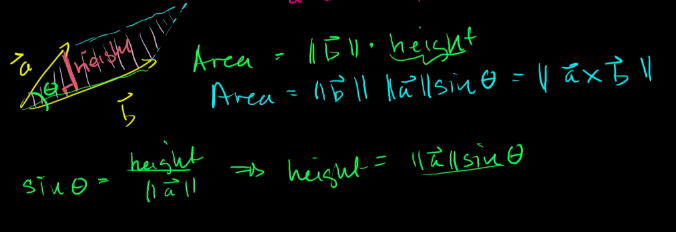 a⃗ θ height b⃗
Area = ||b⃗|| · height
Area = ||b⃗|| ||a⃗|| sin θ = || a⃗ × b⃗ ||
sin θ = height / ||a⃗|| ⇒ height = ||a⃗|| sin θ